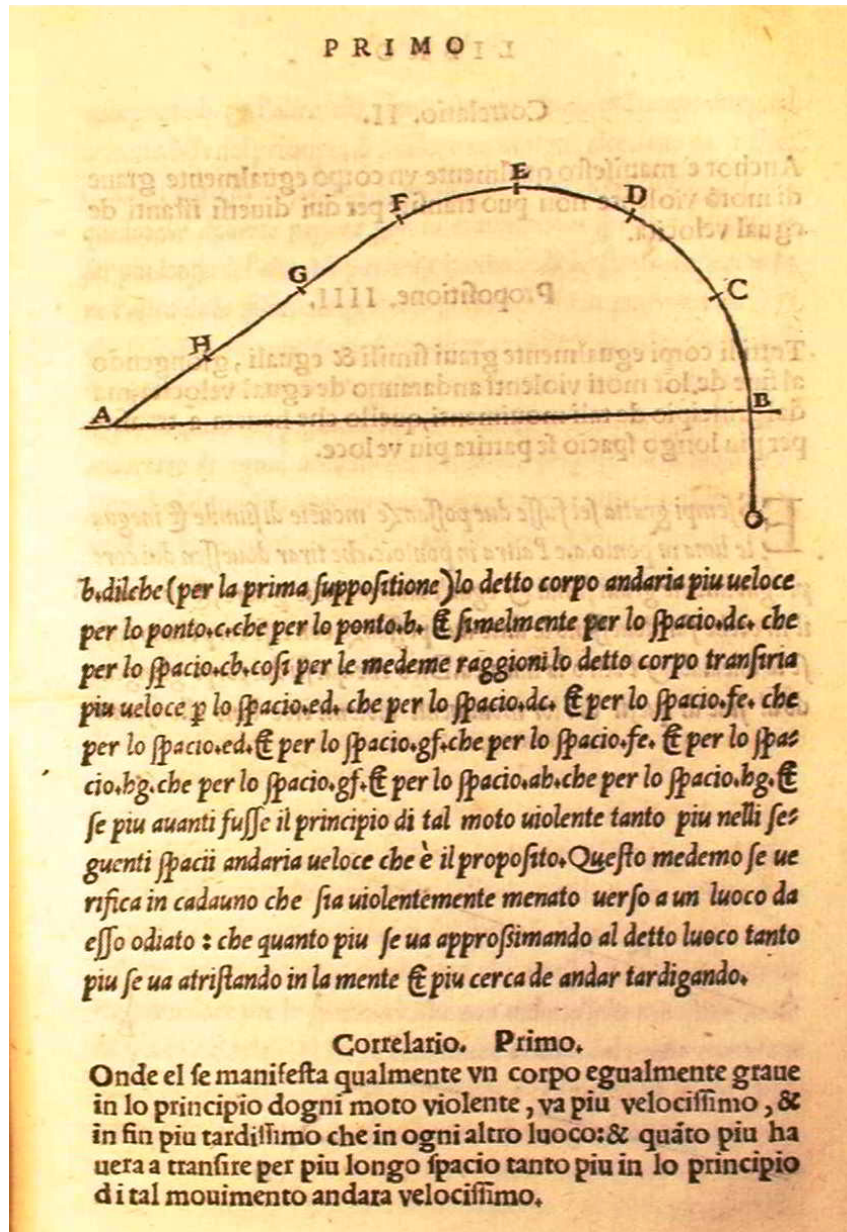 PRIMO
E
F
D
G
C
H
A
B
b. dilche (per la prima suppositione) lo detto corpo andaria piu ueloce
per lo ponto.c.che per lo ponto.b. & simelmente per lo spacio.dc. che
per lo spacio.cb.cosi per le medeme raggioni lo detto corpo transiria
piu ueloce ꝑ lo spacio.ed. che per lo spacio.dc. & per lo spacio.fe. che
per lo spacio.ed.& per lo spacio.gf.che per lo spacio.fe. & per lo spa=
cio.hg.che per lo spacio.gf.& per lo spacio.ab.che per lo spacio.hg.&
se piu auanti fusse il principio di tal moto uiolente tanto piu nelli se=
guenti spacii andaria ueloce che è il proposito.Questo medemo se ue
rifica in cadauno che sia uiolentemente menato uerso a un luoco da
esso odiato : che quanto piu se ua approssimando al detto luoco tanto
piu se ua atristando in la mente & piu cerca de andar tardigando.
Correlario. Primo.
Onde el se manifesta qualmente vn corpo egualmente graue
in lo principio dogni moto violente , va piu velocissimo , &
in fin piu tardissimo che in ogni altro luoco:& quãto piu ha
uera a transire per piu longo spacio tanto piu in lo principio
di tal mouimento andara velocissimo.